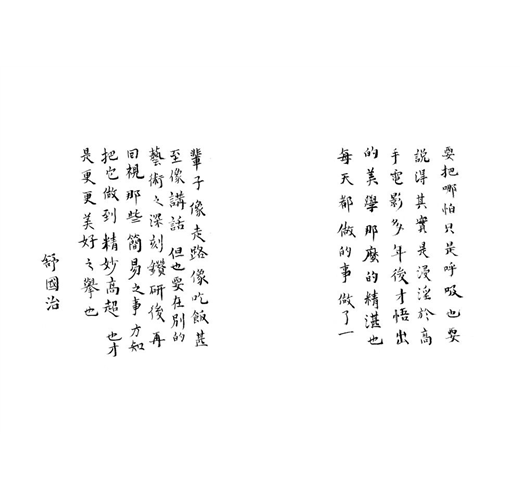 要把哪怕只是呼吸也要
說得其實是浸淫於高
手電影多年後才悟出
的美學那麼的精湛也
每天都做的事做了一
輩子像走路像吃飯甚
至像講話但也要在別的
藝術之深刻鑽研後再
回視那些簡易之事方知
把它做到精妙高超也才
是更更美好之舉也
舒國治